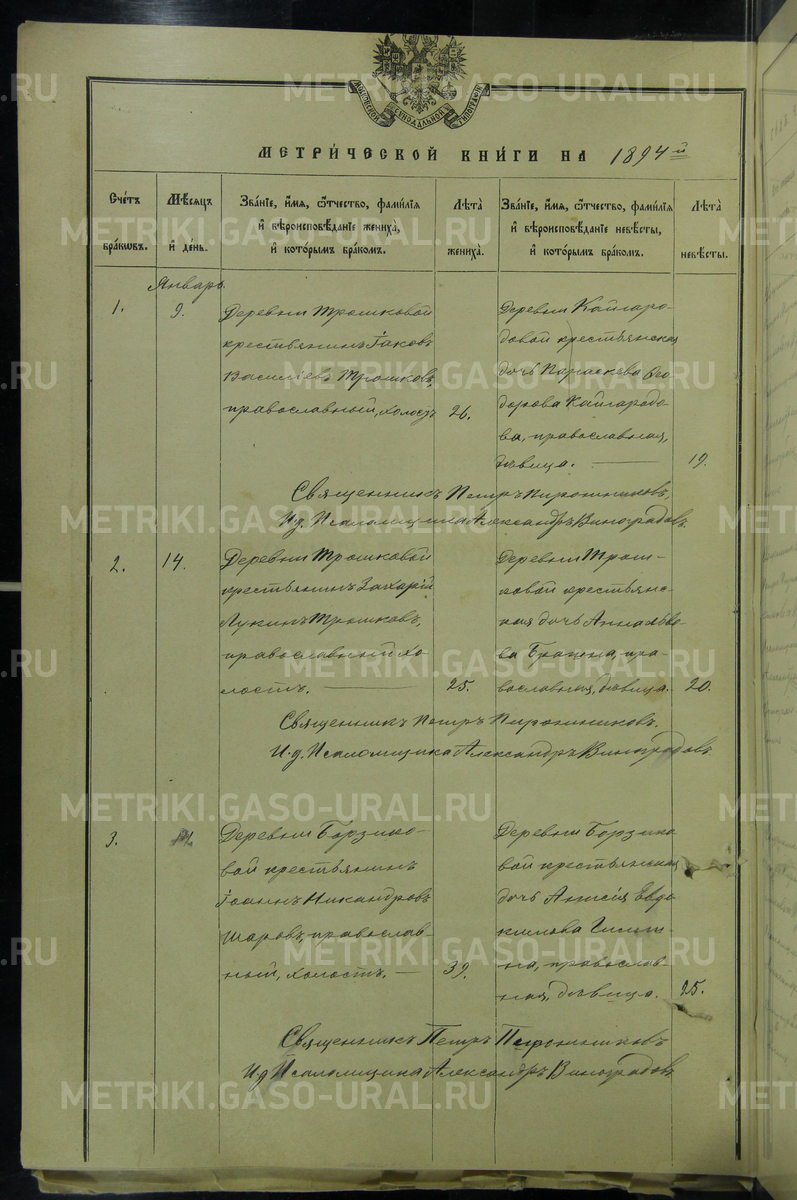 МОСКОВСКОЙ СѴНОДАЛЬНОЙ ТИПОГРАФІИ
МЕТРИ́ЧЕСКОЙ КНИ́ГИ НА 1894й
Сче́тъ бра́кωвъ.
Мѣ́сяцъ и҆ де́нь.
Зва́нїе, и҆́мя, ѻ҆́тчество, фами́лїя
и҆ вѣроисповѣ́данїе жениха̀,
и҆ кото́рымъ бра́комъ.
Лѣ́та жениха̀.
Зва́нїе, и҆́мя, ѻ҆́тчество, фами́лїя
и҆ вѣроисповѣ́данїе невѣ́сты,
и҆ кото́рымъ бра́комъ.
Лѣ́та невѣ́сты.
Январь
1. 9.
Деревни Трошковой
крестьянинъ Іаковъ
Василіевъ Трошковъ,
православный, холостъ
26.
Деревни Кайгаро-
довой крестьянская
дочь Параскева Ѳео-
дорова Кайгародо-
ва, православная,
дѣвица.
19.
Священникъ Петръ Пирожниковъ.
И.д. Псаломщика Александръ Виноградовъ
2. 14.
Деревни Трошковой
крестьянинъ Захарій
Лукинъ Трошковъ,
православный, хо-
лостъ.
25.
Деревни Трош-
ковой крестьянс-
кая дочь Анна
ва, пра-
вославная, дѣвица.
20.
Священникъ Петръ Пирожниковъ.
И.д. Псаломщика Александръ Виноградовъ
3.
Деревни Борзико-
вой крестьянинъ
Іоаннъ Никандровъ
Шаровъ, православ-
ный, холостъ.
39.
Деревни Борзико
вой крестьянская
дочь Анисія Евдо
кимова
на, православ-
ная, дѣвица.
25.
Священникъ Петръ Пирожниковъ
И.д. Псаломщика Александръ Виноградовъ
METRIKI.GASO-URAL.RU